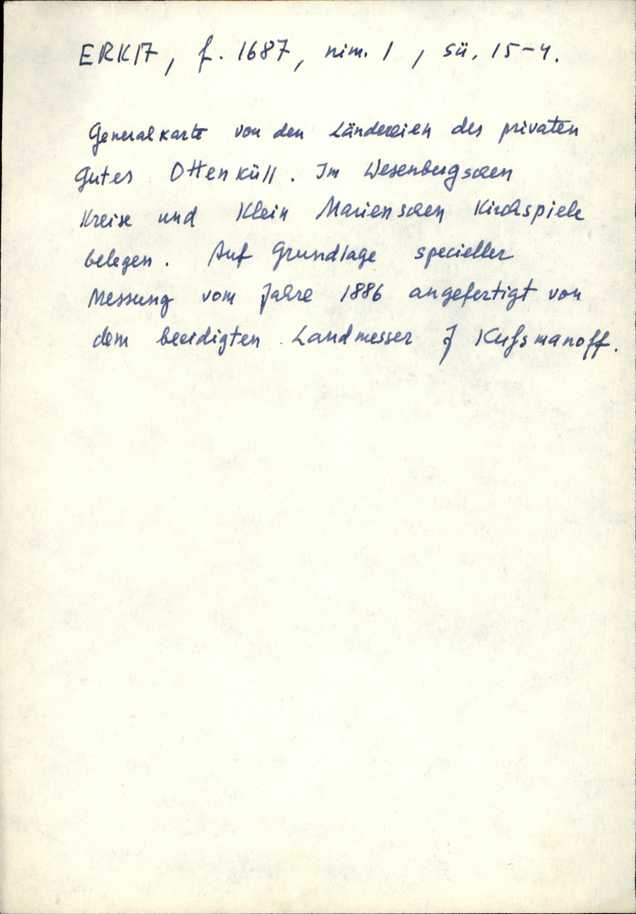 ERKA, f. 1687, nim. 1, sü. 15-4.
Generalkarte von den Ländereien des privaten
Gutes Ottenküll. Im Wesenbergschen
Kreise und Klein Marienschen Kirchspiele
belegen. Auf Grundlage specieller
Messung vom Jahre 1886 angefertigt von
dem beeidigten Landmesser J Kußmanoff.